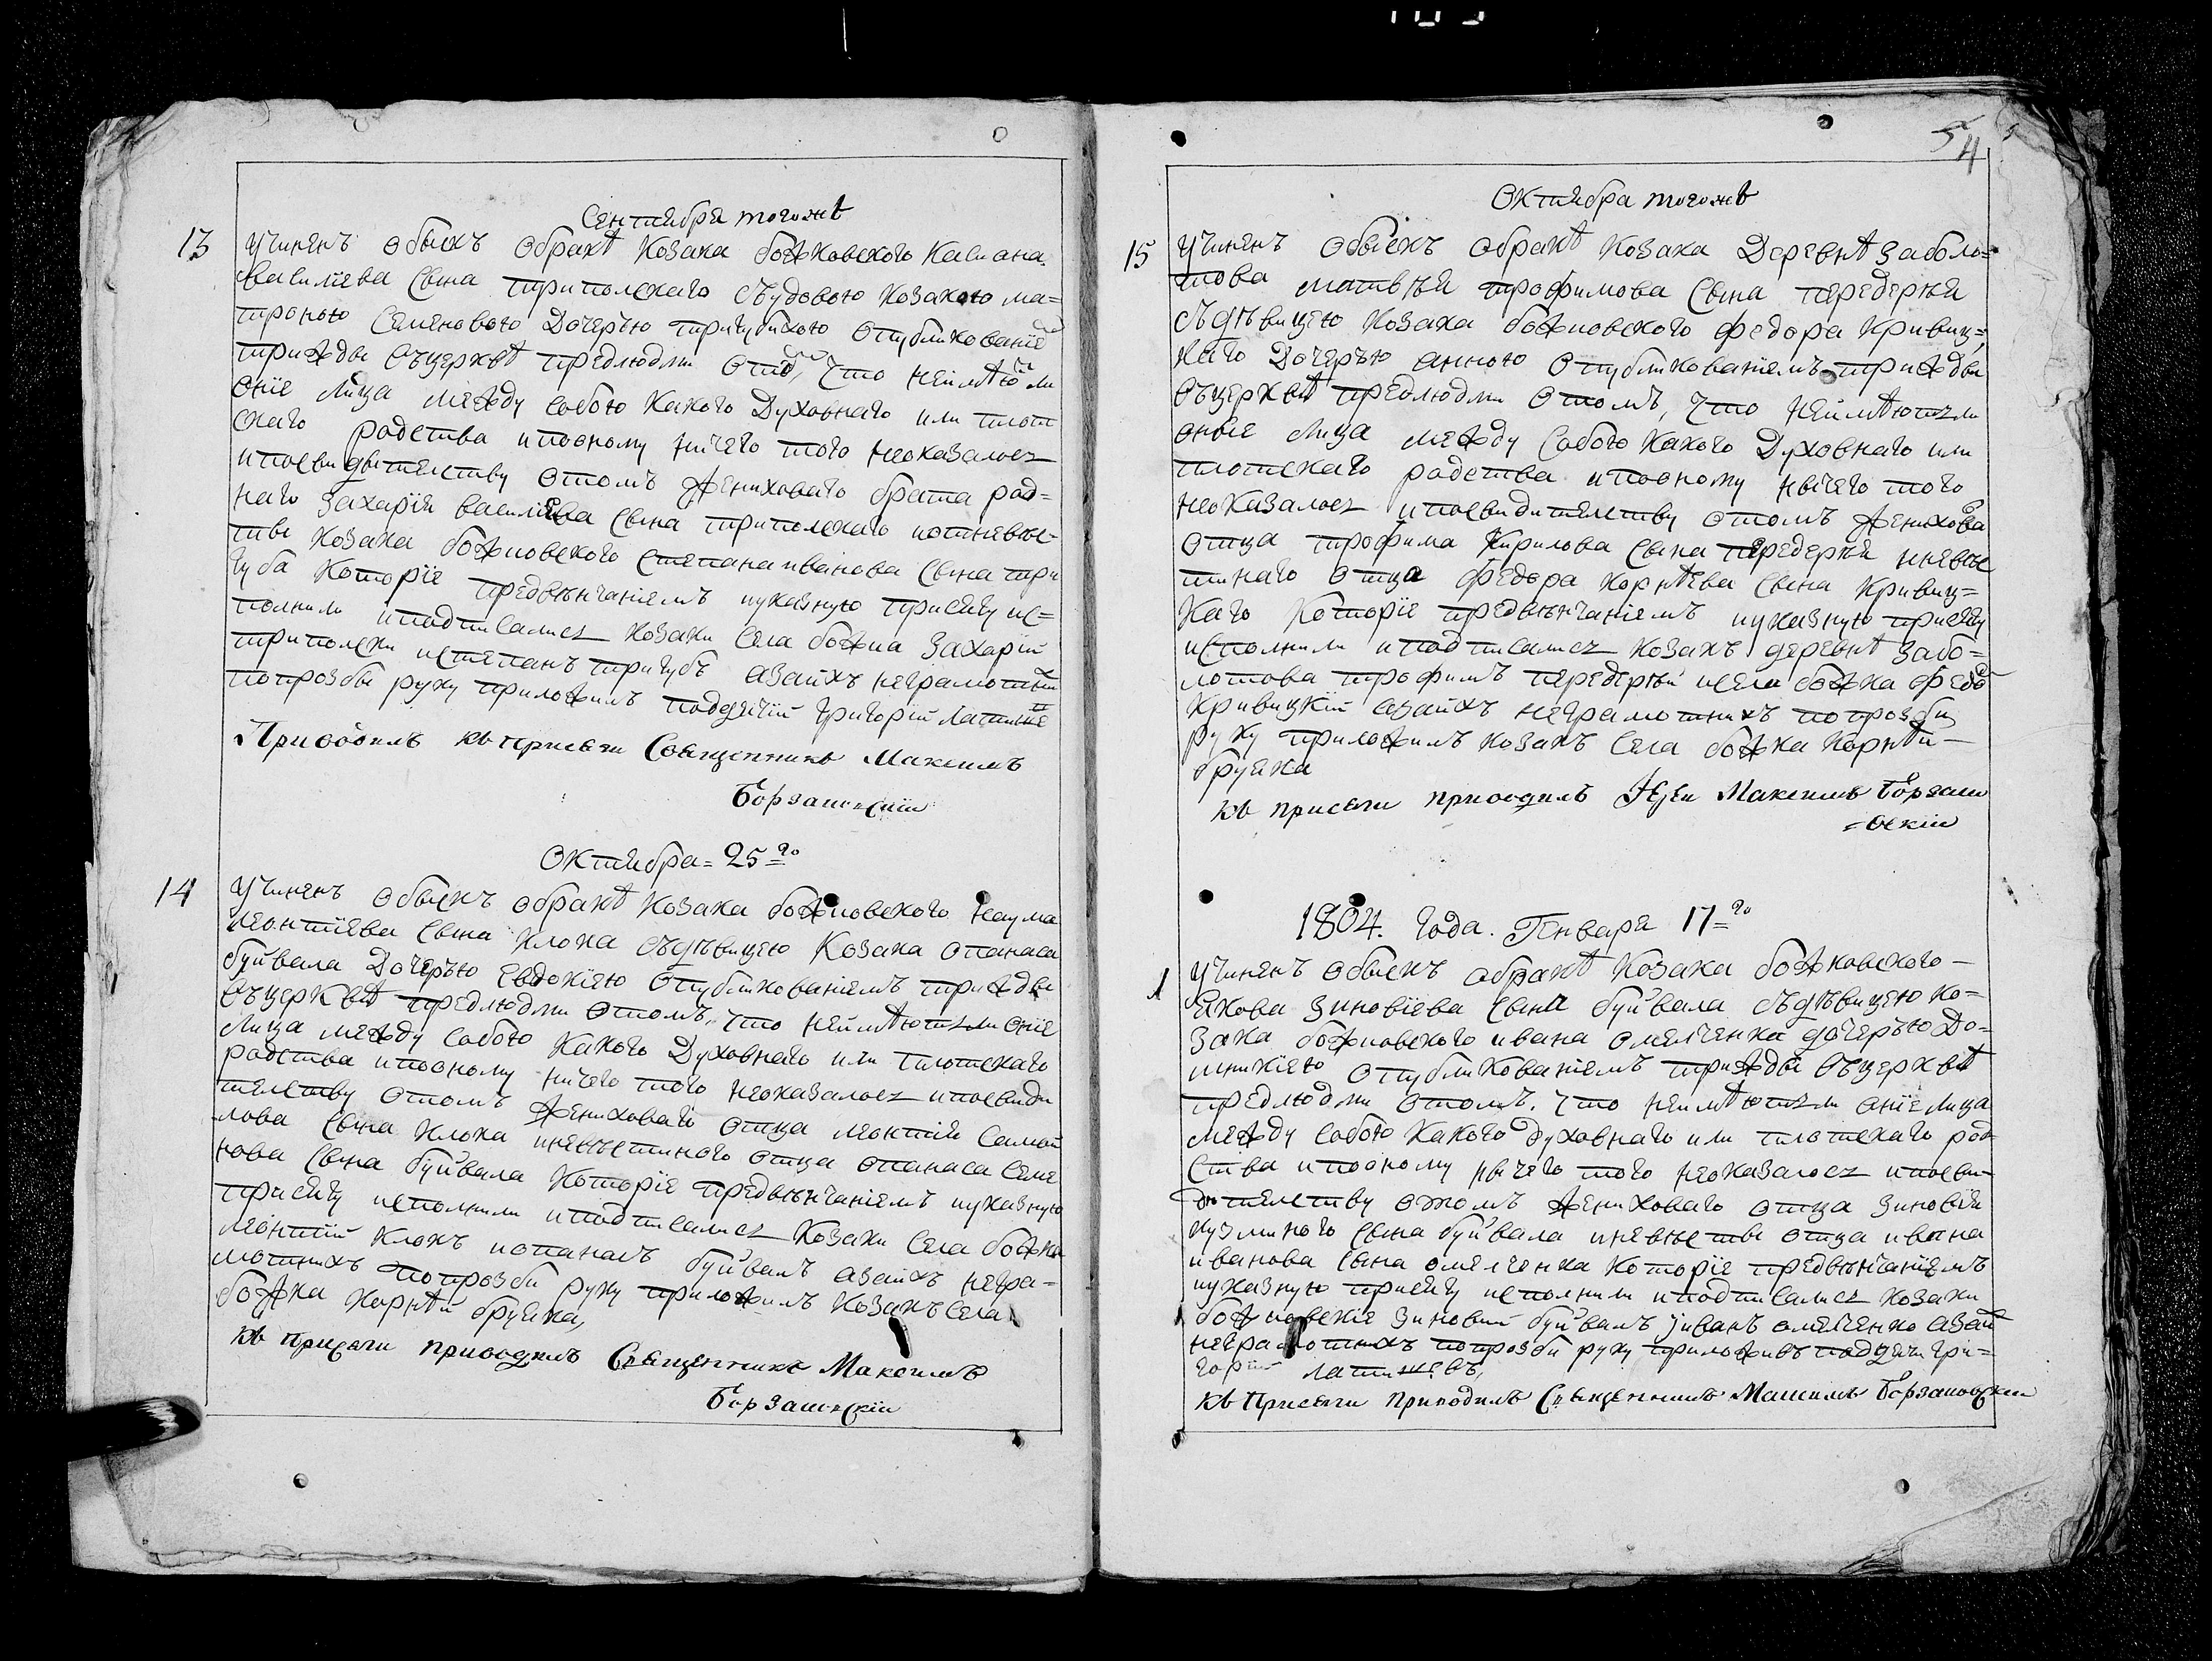 Сентября тогожѣ
13 Учиненъ обыскъ обракѣ козака божковского Касиана
василіева сына триполскаго съудовою козакою ма=
троною семеновою дочерѣю тригубихою опубликованіе
трижды въцерквѣ предлюдми отом, что неимѣют ли
оніе лица между собою какого духовнаго или плот
скаго родства ипооному ничего того неоказалось
ипосвидѣтелству отомъ жениховаго брата род=
наго захарія василіева сына триполскаго иотневѣс-
ти козака божковского степана иванова сына три
губа которіе предвѣнчаніемъ иуказную присягу ис=
полнили иподписались козаки села божка захарій
триполски истепанъ тригубъ азаихъ неграмотныи
попрозби руку приложилъ поддячій григорій
Приводилъ къ присяги Священникъ Максимъ
Борзаковскій
Октября = 25го
14 Учиненъ обыскъ обракѣ козака божковского наума
леонтіева сына клока съдѣвицею козака опанаса
буйвала дочерѣю евдокіею опубликованіемъ трижды
въцерквѣ предлюдми отомъ, что неимѣютъли оніе
лица между собою какого духовнаго или плотскаго
родства ипооному ничего того неоказалось ипосвиди
телству отомъ жениховаго отца леонтія самой
лова сына клока иневѣстиного отца опанаса семе
нова сына буйвала которіе предвѣнчаніемъ иуказную
присягу исполнили иподписались козаки села божка
леонтій клокъ иопанасъ буйвалъ азаихъ негра=
мотнихъ попрозби руку приложилъ козакъ села
божка корнѣй бруяка,
къ присяги приводилъ Священникъ Максимъ
Борзаковскій
54
Октября тогожѣ
15 Учиненъ обыскъ обракѣ козака деревнѣ заболо=
това матвѣя трофимова сына передерѣя
съдѣвицею козака божковского федора кривиц=
каго дочерѣю анною опубликованіемъ трижды
въцерквѣ предлюдми отомъ, что неимѣютъли
оные лица между собою какого духовнаго или
плотскаго родства ипооному нычего того
неоказалось ипосвидителству отомъ женихова
отца трофима кирилова сына передерѣя иневѣс
тинаго отца федора корнѣева сына кривиц=
каго которіе предвѣнчаніемъ иуказную присягу
исполнили иподписались козакъ деревнѣ забо=
лотова трофимъ передерѣй исела божка федо
кривицкій азаихъ неграмотнихъ попрозби
руку приложилъ козакъ села божка корнѣй-
бруяка
къ присяги приводилъ Іерей Максимъ Борзако
=вскій
1804. года. Генваря 17=го
1 Учиненъ обыскъ обракѣ козака божковского-
якова зиновіева сына буйвала съдѣвицею ко=
зака божковского ивана омелченка дочерѣю до=
мникіею опубликованіемъ трижды въцерквѣ
предлюдми отомъ. что неимѣютъли оніе лица
между собою какого духовнаго или плотскаго род
ства ипооному нычего того неоказалось ипосви-
дителству отомъ жениховаго отца зиновія
кузминого сына буйвала иневѣсти отца ивана
иванова сына омелченка которіе предвѣнчаніемъ
иуказную присягу исполнили иподписались козаки
божковскіе зиновий буйвалъ ииванъ омелченко азаи
неграмотнихъ попрозби руку приложивъ поддячи гри=
горій
къ Присяги Приводилъ Священникъ Максимъ Борзаковскій